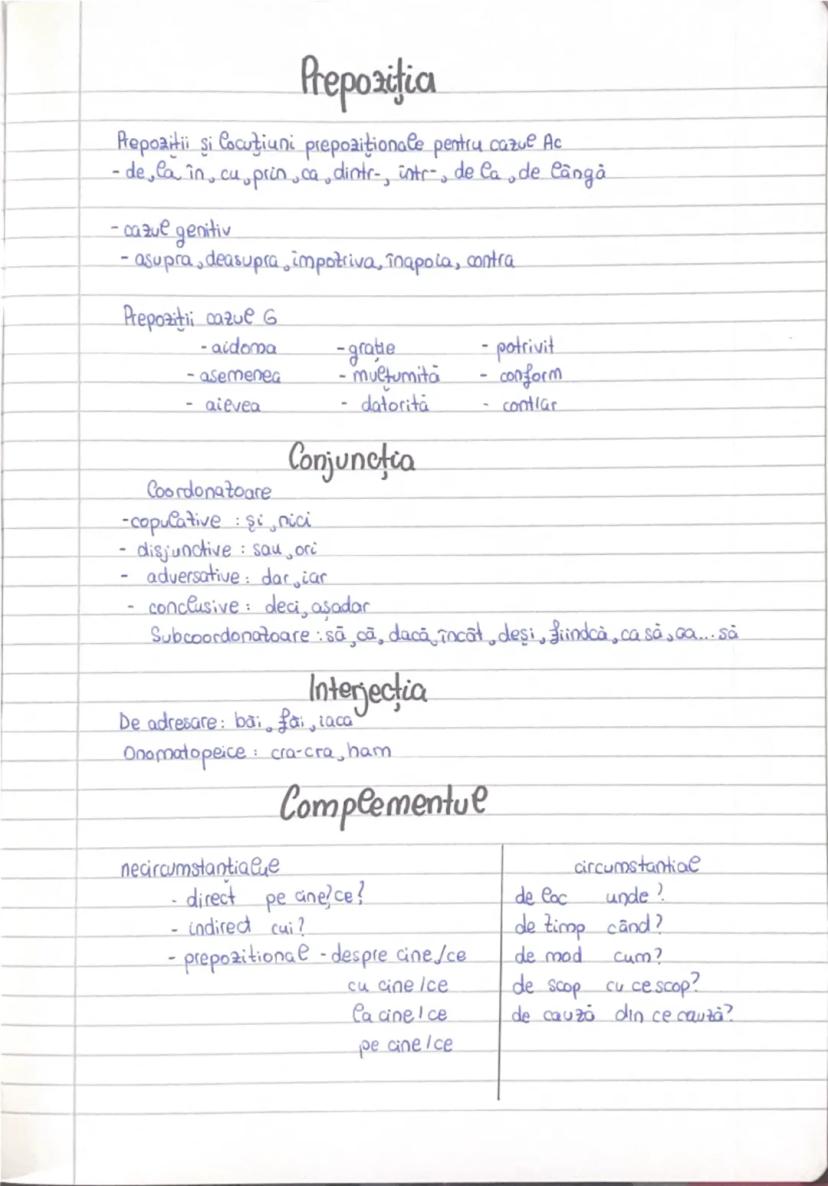 Prepoziția
Prepoziții și locuțiuni prepoziționale pentru cazul Ac
- de, la în, cu, prin, ca, dintr-, într-, de la, de lângă
- cazul genitiv
- asupra, deasupra, împotriva, înapoia, contra
Prepoziții cazul G
- aidoma - grație - potrivit
- asemenea - mulțumită - conform
- aievea - datorită - contrar
Conjuncția
Coordonatoare
- copulative : și, nici
- disjunctive : sau, ori
- adversative : dar, iar
- conclusive : deci, așadar
Subcoordonatoare : să, că, dacă, încât, deși, fiindcă, ca să, ca... să
Interjecția
De adresare : băi, făi, iaca
Onomatopeice : cra-cra, ham
Complementul
necircumstanțialele circumstantial
- direct pe cine/ce? de loc unde?
- indirect cui? de timp când?
- prepozitional - despre cine/ce de mod cum?
cu cine/ce de scop cu ce scop?
la cine/ce de cauză din ce cauză?
pe cine/ce